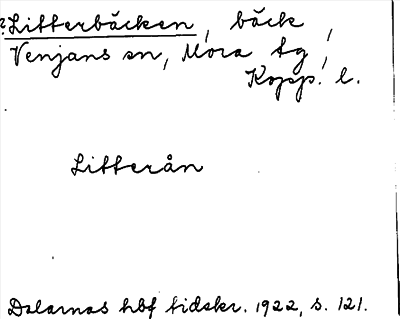 ?Litterbäcken, bäck,
Venjans sn, Mora tg,
Kopp. l.
Litterån
Dalarnas hbf tidskr. 1922, s. 121.